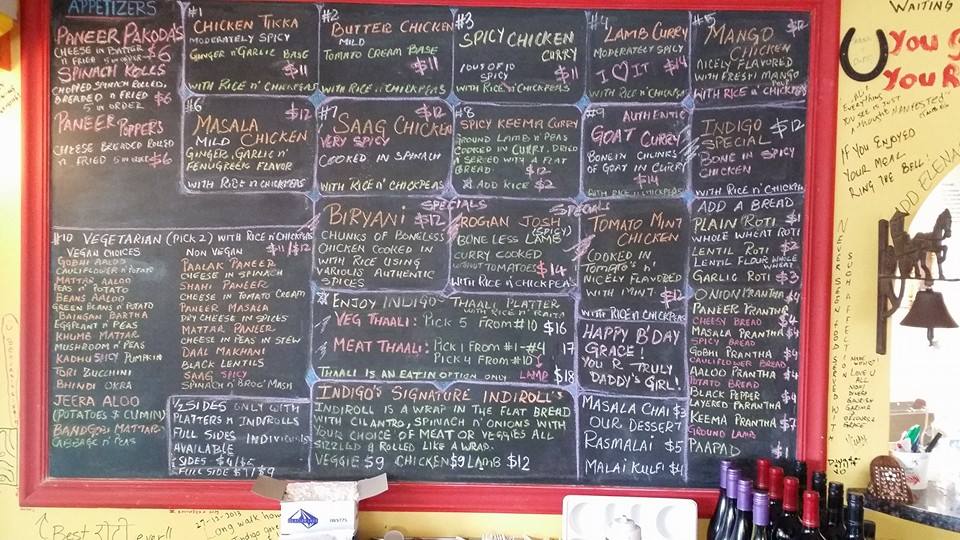 APPETIZERS
PANEER PAKODA'S
CHEESE IN BATTER
N FRIED 5 IN ORDER $6
SPINACH ROLLS
CHOPPED SPINACH ROLLED,
BREADED N FRIED
5 IN ORDER $6
PANEER POPPERS
CHEESE BREADED ROLLED
N FRIED 5 IN ORDER $6
#1
CHICKEN TIKKA
MODERATELY SPICY
GINGER N' GARLIC BASE
$11
WITH RICE N' CHICKPEAS
#2
BUTTER CHICKEN
MILD
TOMATO CREAM BASE
$11
WITH RICE N' CHICKPEAS
#3
SPICY CHICKEN
CURRY
10 OUT OF 10
SPICY
$11
WITH RICE N' CHICKPEAS
#4
LAMB CURRY
MODERATELY SPICY
I ♡ IT $14
WITH RICE N' CHICKPEAS
#5
$12
MANGO
CHICKEN
NICELY FLAVORED
WITH FRESH MANGO
WITH RICE N' CHICKPEAS
#6
$12
MASALA
MILD CHICKEN
GINGER, GARLIC N'
FENUGREEK FLAVOR
WITH RICE N' CHICKPEAS
#7
$12
SAAG CHICKEN
VERY SPICY
COOKED IN SPINACH
WITH RICE N' CHICKPEAS
#8
SPICY KEEMA CURRY
GROUND LAMB N' PEAS
COOKED IN CURRY, DRIED
N SERVED WITH A FLAT
BREAD $12
ADD RICE $2
#9 AUTHENTIC
GOAT CURRY
BONE IN CHUNKS
OF GOAT IN CURRY
$14
WITH RICE N' CHICKPEAS
INDIGO $12
SPECIAL
BONE IN SPICY
CHICKEN
WITH RICE N' CHICKPEAS
SPECIALS
BIRYANI $12
CHUNKS OF BONELESS
CHICKEN COOKED IN
WITH RICE USING
VARIOUS AUTHENTIC
SPICES
ROGAN JOSH
(SPICY)
BONELESS LAMB
CURRY COOKED
WITHOUT TOMATOES $14
WITH RICE N' CHICKPEAS
SPECIALS
TOMATO MINT
CHICKEN
COOKED IN
TOMATO'S N'
NICELY FLAVOURED
WITH MINT $12
WITH RICE N' CHICKPEAS
ADD A BREAD
PLAIN ROTI $1
WHOLE WHEAT ROTI
LENTIL ROTI $2
LENTIL FLOUR WHOLE
WHEAT
GARLIC ROTI $3
ONION PRANTHA $4
PANEER PRANTHA $4
CHEESY BREAD
MASALA PRANTHA $4
SPICY BREAD
GOBHI PRANTHA $4
CAULIFLOWER BREAD
AALOO PRANTHA $4
POTATO BREAD
BLACK PEPPER
LAYERED PARANTHA $4
KEEMA PRANTHA $7
GROUND LAMB
PAAPAD
#10 VEGETARIAN (PICK 2) WITH RICE N' CHICKPEAS
$11/$12
VEGAN CHOICES
GOBHI AALOO
CAULIFLOWER N' POTATO
MATTAR AALOO
PEAS N' POTATO
BEANS AALOO
GREEN BEANS POTATO
BAINGAN BARTHA
EGGPLANT N' PEAS
KHUMB MATTAR
MUSHROOM N' PEAS
KADHU SPICY PUMPKIN
TORI ZUCCHINI
BHINDI OKRA
JEERA ALOO
(POTATOES $ CUMIN)
BANDGOBI MATTAR
CABBAGE N' PEAS
NON VEGAN
PAALAK PANEER
CHEESE IN SPINACH
SHAHI PANEER
CHEESE IN TOMATO CREAM
PANEER MASALA
DRY CHEESE IN SPICES
MATTAR PANEER
CHEESE N PEAS IN STEW
DAAL MAKHANI
BLACK LENTILS
SAAG SPICY
SPINACH N' BROC' MASH
½ SIDES ONLY WITH
PLATTERS N INDIROLLS
FULL SIDES INDIVIDUALLY
AVAILABLE
½ SIDES $4/$5
FULL SIDE $7/$9
ENJOY INDIGO THAALI PLATTER
WITH RICE N' RAITA
VEG THAALI: PICK 5 FROM #10 $16
MEAT THAALI: PICK 1 FROM #1-#4 17
PICK 4 FROM #10
THAALI IS AN EAT IN OPTION ONLY LAMB $18
INDIGO'S SIGNATURE INDIROLL'S
INDIROLL IS A WRAP IN THE FLAT BREAD
WITH CILANTRO, SPINACH N' ONIONS WITH
YOUR CHOICE OF MEAT OR VEGGIES ALL
SIZZLED & ROLLED LIKE A WRAP.
VEGGIE $9 CHICKEN $9 LAMB $12
HAPPY B'DAY
GRACE!
YOU R TRULY
DADDY'S GIRL!
MASALA CHAI $3
OUR DESSERT
RASMALAI $5
MALAI KULFI $4
WAITING
You G
You R
IF YOU ENJOYED
YOUR MEAL
RING THE BELL!
Best रोटी ever!!
Long walk